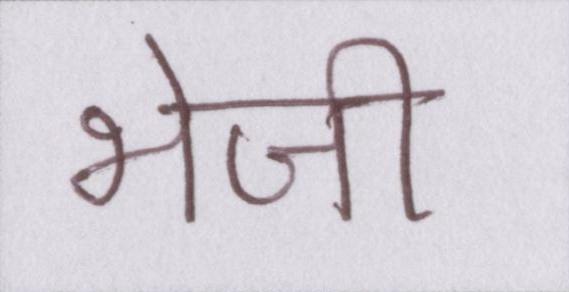 भेजी